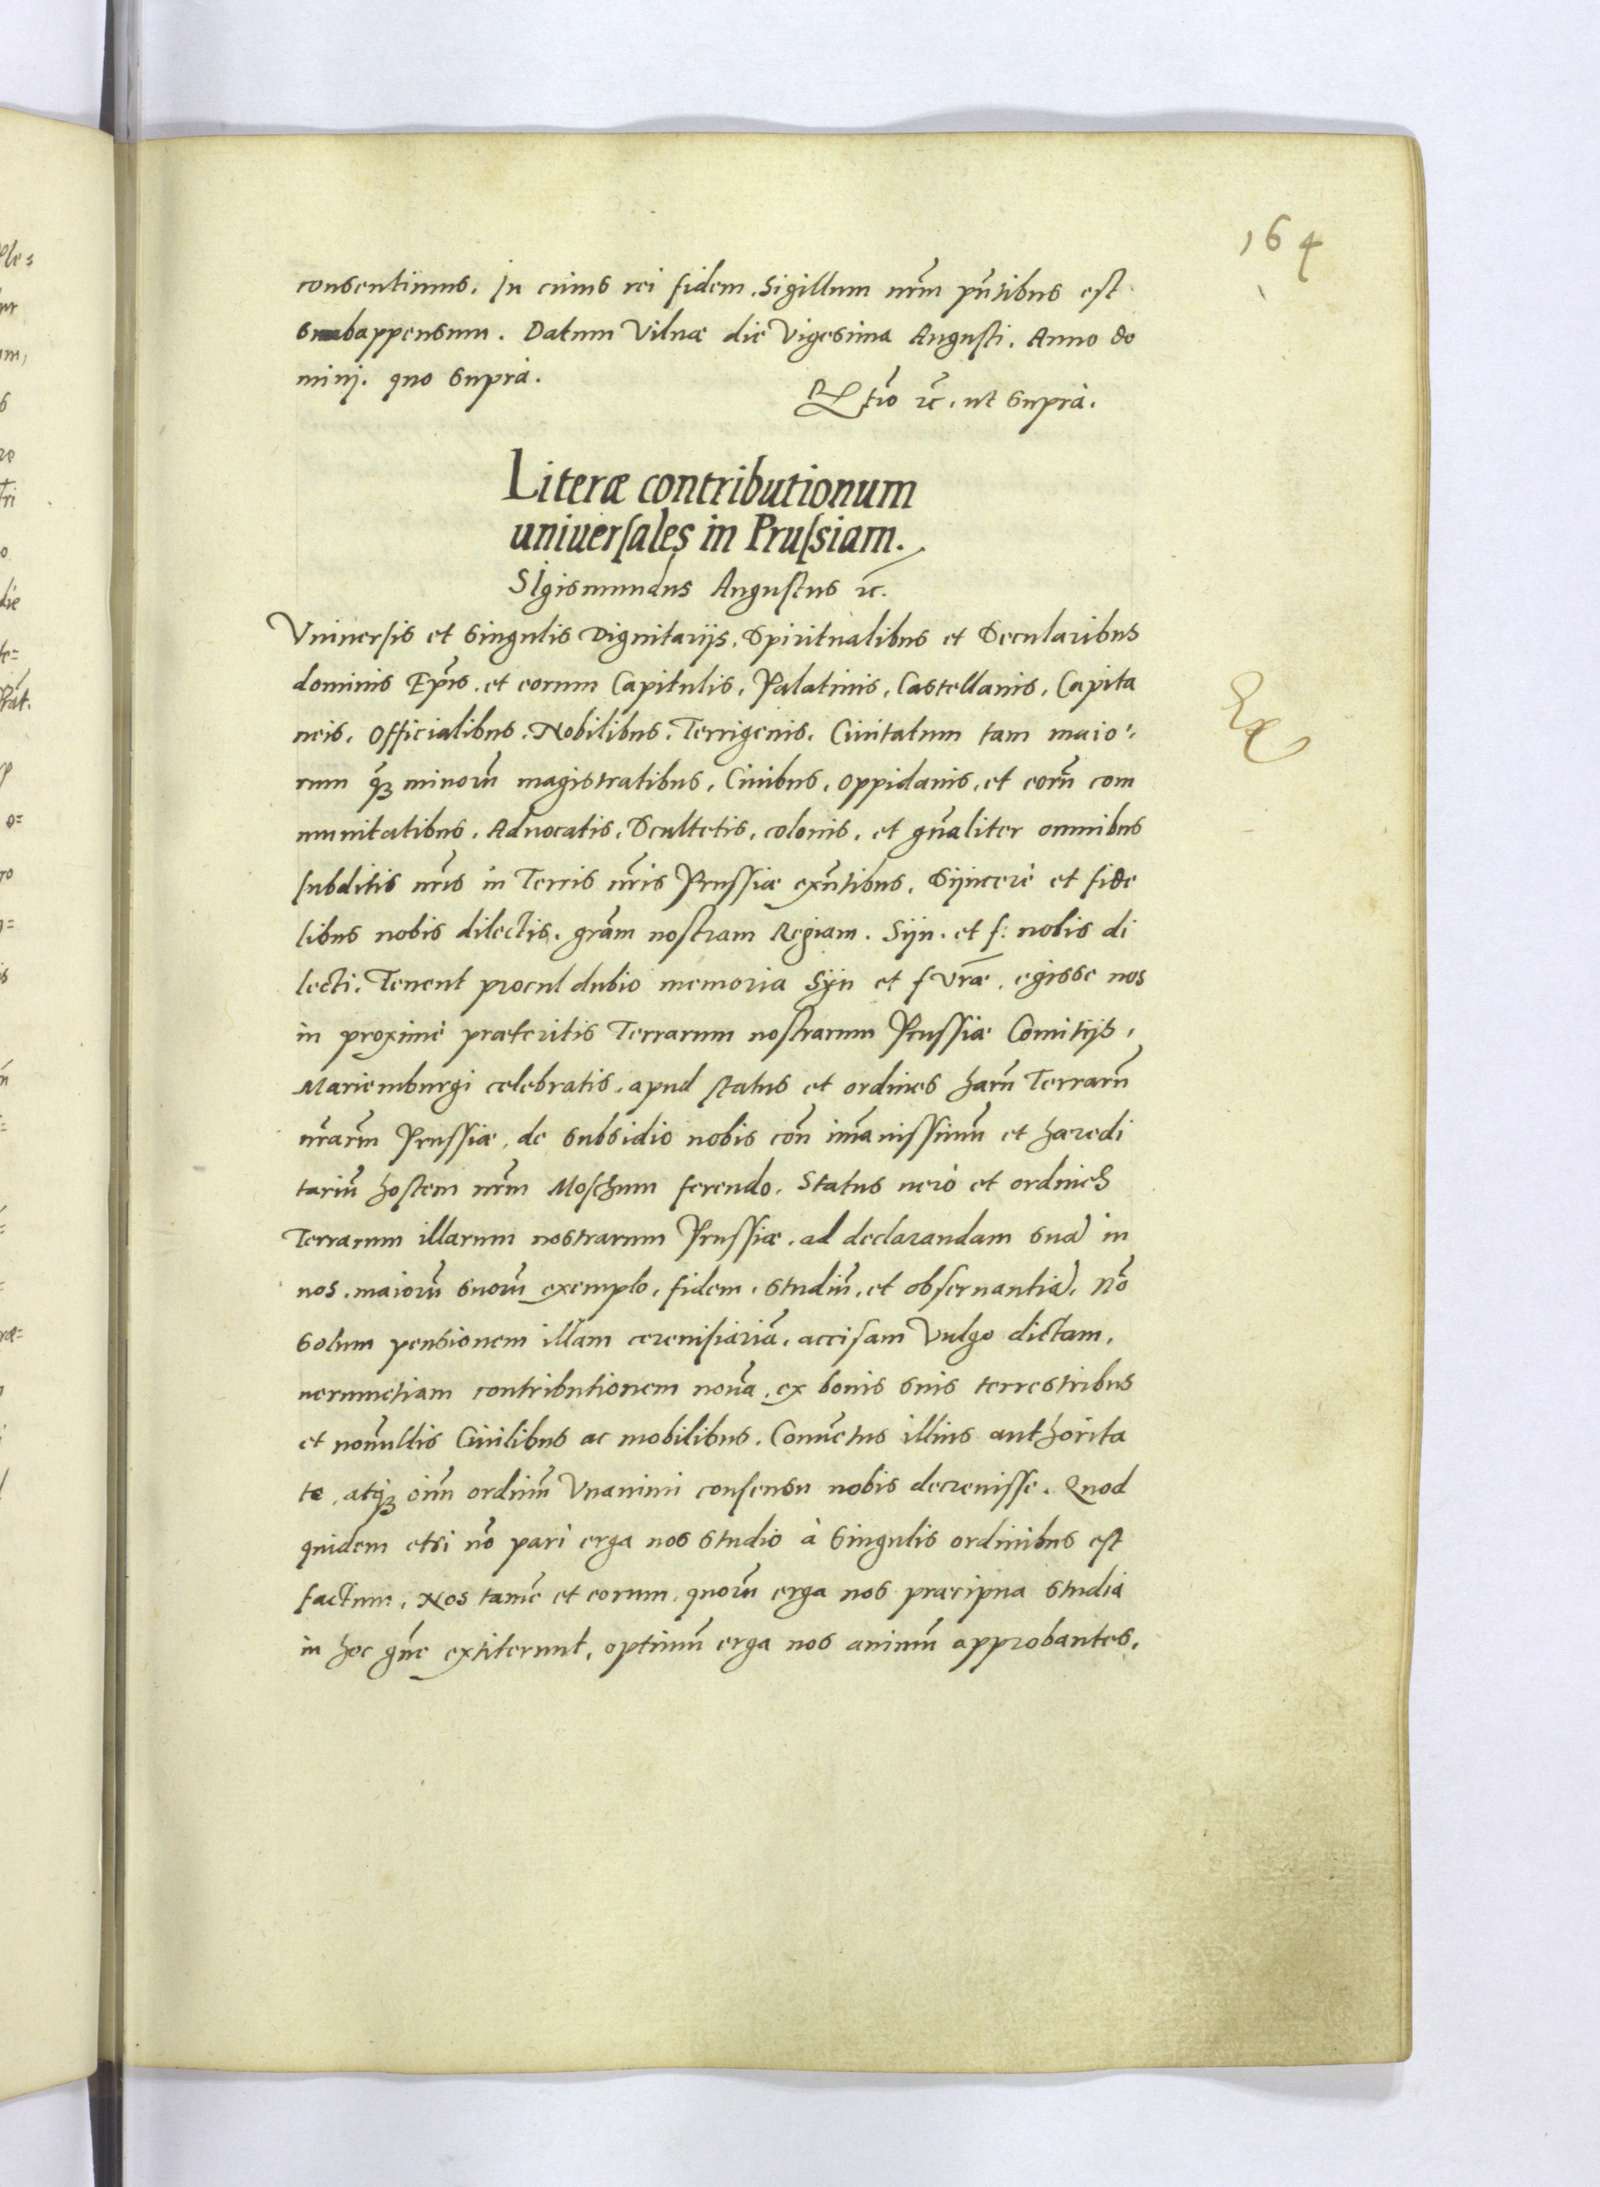 164
consentimus. In cuius rei fidem. Sigillum nr̄m pn̄tibus est
subappensum. Datum Vilnæ die Vigesima Augusti. Anno do
minj. quo supra.
Rl̄tio ꝛc̄. ut suprà.
Literæ contributionum
uniuersales in Prussiam.
Sigismundus Augustus ꝛc̄.
Vniuersis et singulis Dignitarijs. Spiritualibus et Secularibus
dominis Ep̄is. et eorum Capitulis. Palatinis. Castellanis. Capita
neis. Officialibus. Nobilibus. Terrigenis. Ciuitatum tam maio:
rum q̄ꝫ minorū magistratibus. Ciuibus. oppidanis. et eorū com
munitatibus. Aduocatis. Scultetis. colonis. et gn̄aliter omnibus
subditis nr̄is in Terris nr̄is Prussiæ exn̄tibus. Sijncerè et fide
libus nobis dilectis. gr̄am nostram Regiam. Sijn. et f: nobis di
lecti. Tenent procul dubio memoria Sijn et f vr̄æ. egisse nos
in proximè præteritis Terrarum nostrarum Prussiæ Comitijs.
Mariemburgi celebratis. apud status et ordines harū Terrarū
nr̄arū Prussiæ. de subsidio nobis cōn im̄anissimū et hæredi
tariū hostem nr̄m Moschum ferendo. Status uerò et ordines
Terrarum illarum nostrarum Prussiæ. ad declarandam suā in
nos. maiorū suorū exemplo. fidem. studiū. et obseruantiā. nō
solum pensionem illam cereuisiariā. accisam Vulgo dictam.
uerumetiam contributionem nouā. ex bonis suis terrestribus
et nonnullis Ciuilibus ac mobilibus. Conuētus illius authorita
te. atqꝫ oīm ordinū Vnanimi consensu nobis decreuisse. Quod
quidem etsi nō pari erga nos studio à singulis ordinibus est
factum. Nos tamē et eorum. quorū erga nos præcipua studia
in hoc gn̄e extiterunt. optimū erga nos animū approbantes.